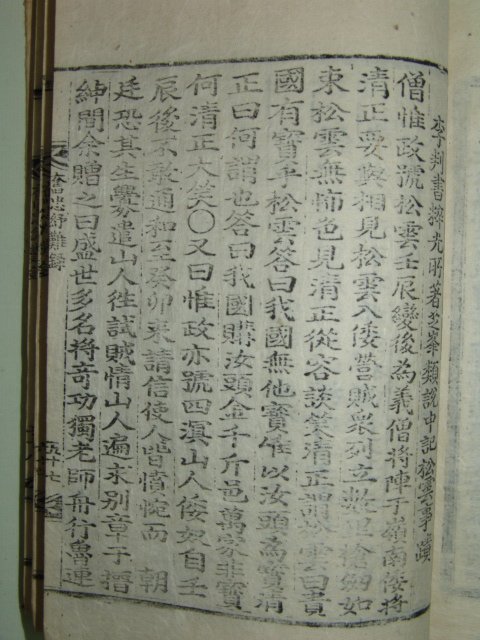 李判書睟光所著芝峯類說中記松雲事蹟
僧惟政號松雲壬辰變後為義僧將陣于嶺南倭將
清正要與相見松雲入倭營賊衆列立數里槍劒如
束松雲無怖色見清正從容談笑清正謂松雲曰貴
國有寶乎松雲答曰我國無他寶惟以汝頭爲寶清
正曰何謂也答曰我國購汝頭金千斤邑萬家非寶
何清正大笑〇又曰惟政亦號四溟山人倭奴自壬
辰後不敢通和至癸卯來請信使人皆憤惋而 朝
廷恐其生釁遣山人徃試賊情山人遍求別章于搢
紳間余贈之曰盛世多名將奇功獨老師舟行魯連
奮忠紓難錄
五十七